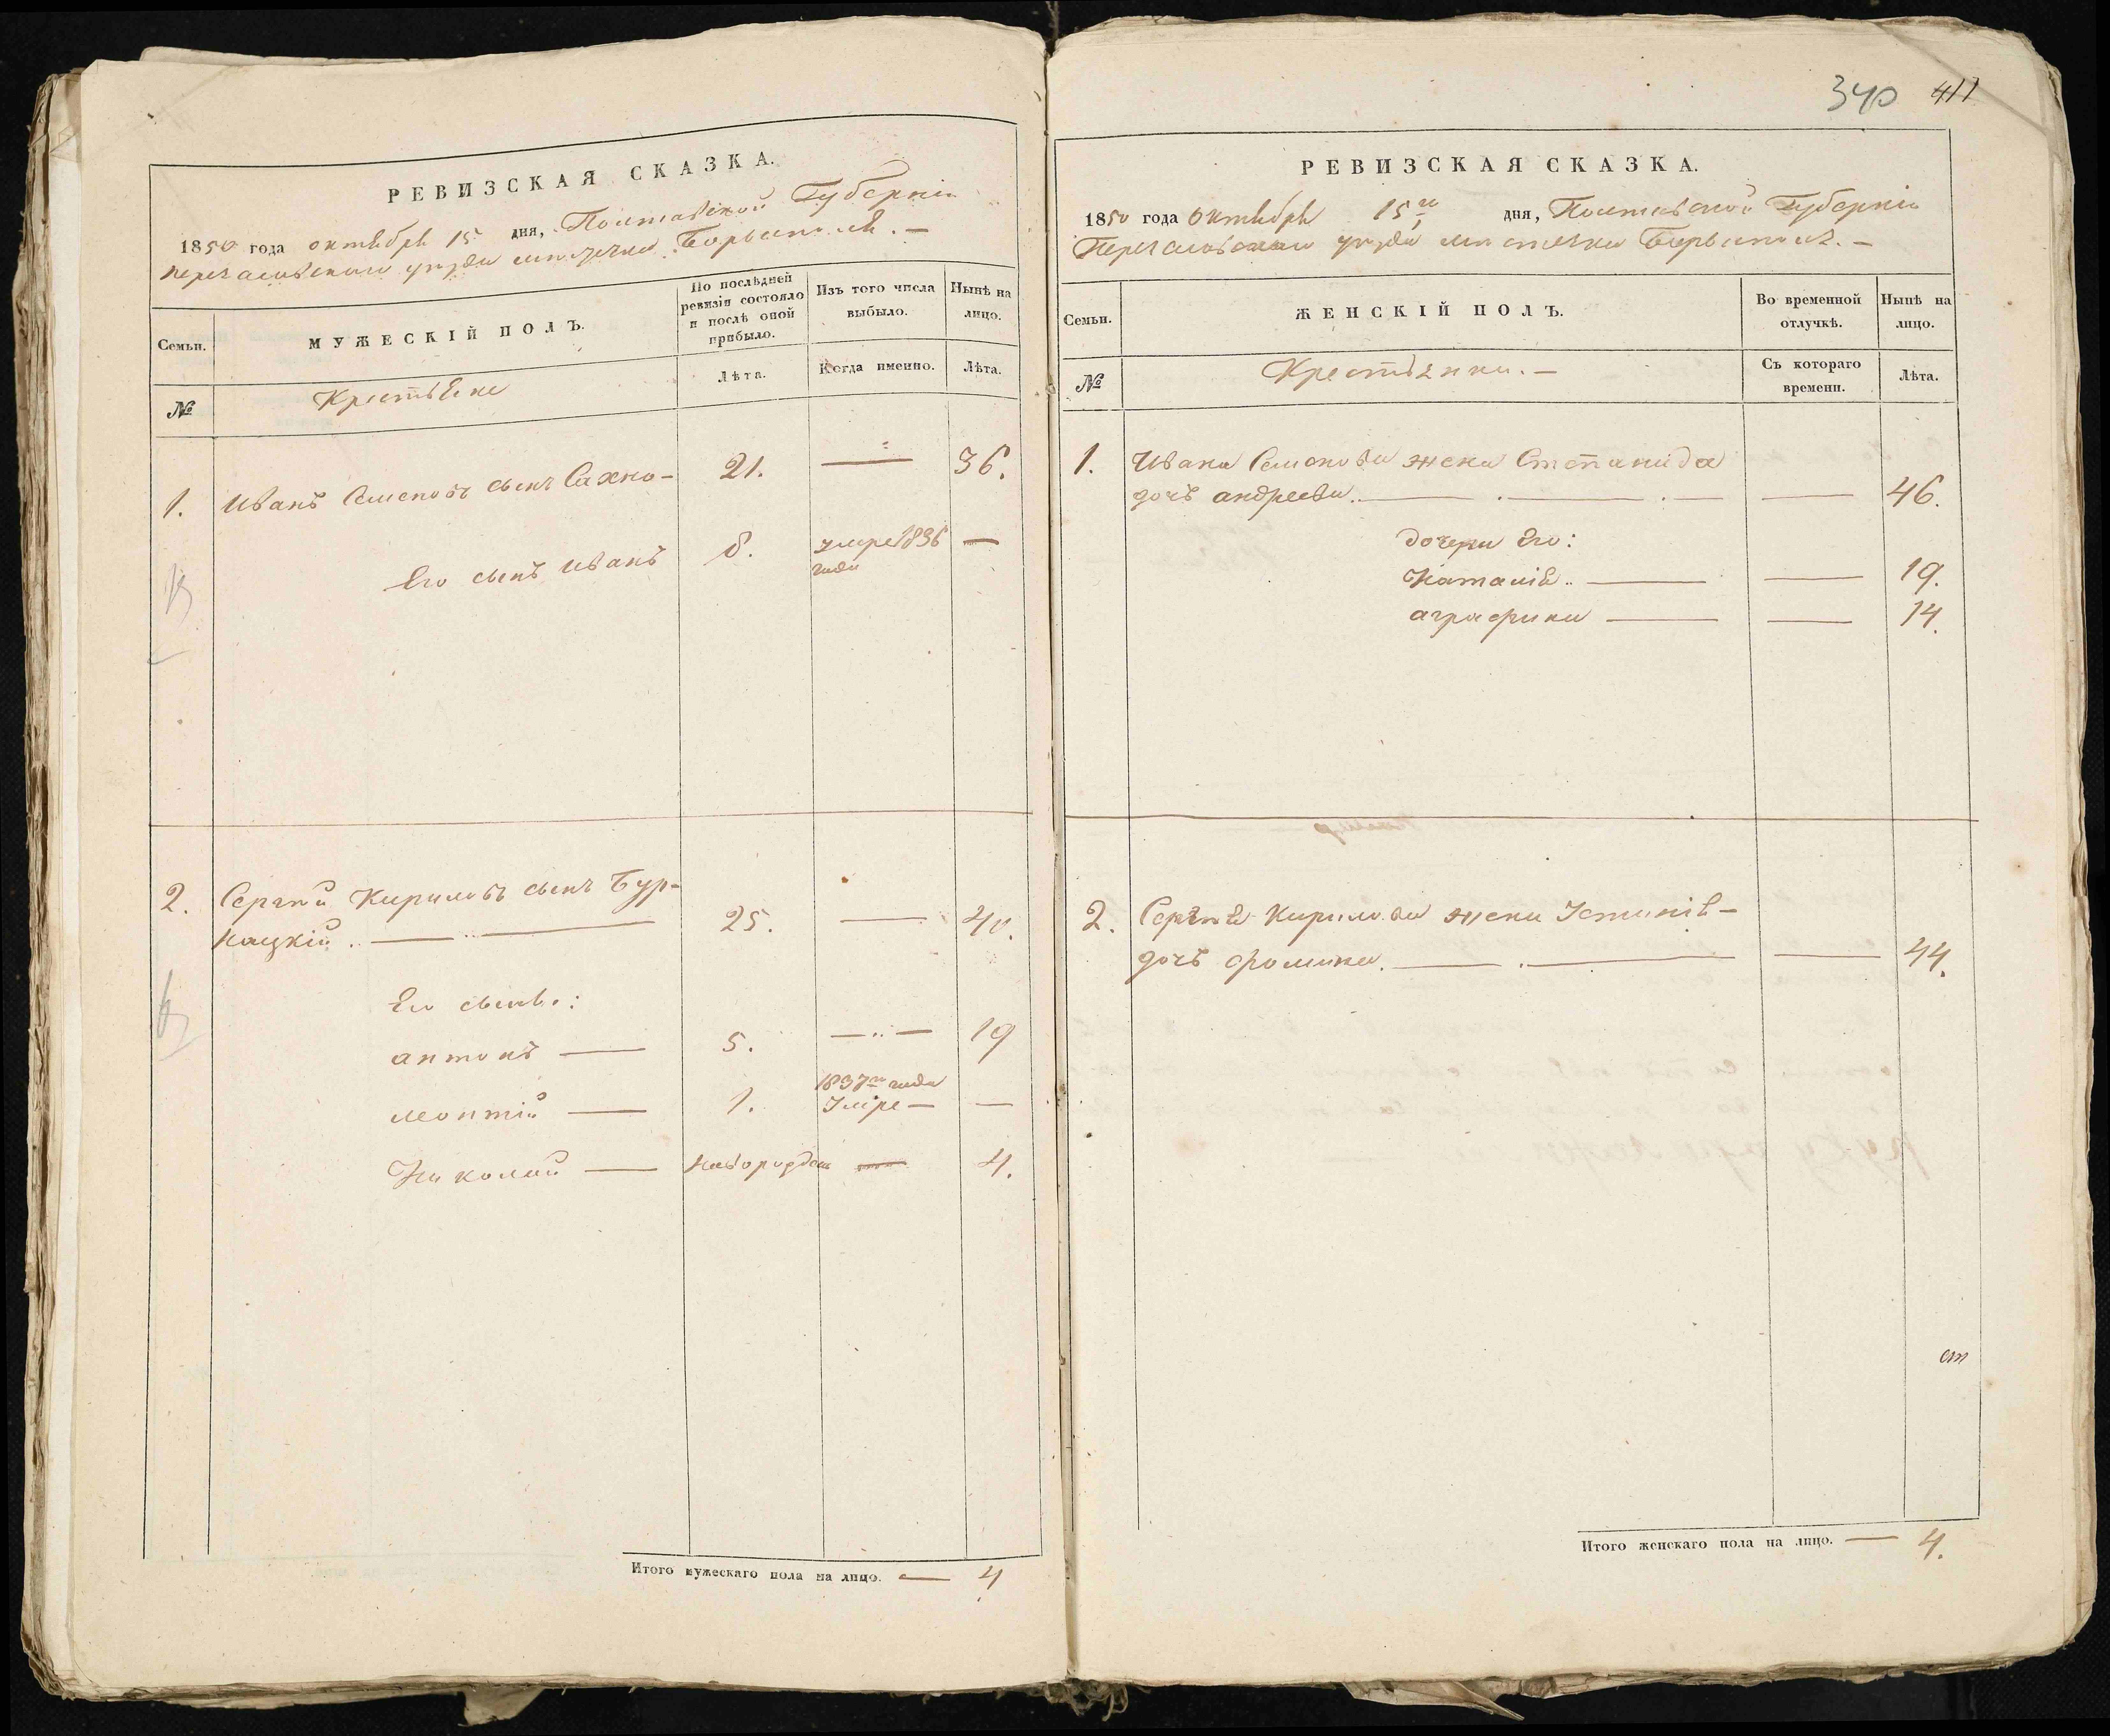 РЕВИЗСКАЯ СКАЗКА.
1850 года октября 15 дня, Полтавской Губерніи
переяславскаго уезда местечка Борысполя. —
Семьи.
МУЖЕСКІЙ ПОЛЪ.
По послѣдней ревизіи состояло и послѣ оной прибыло.
Изъ того числа выбыло.
Нынѣ на лицо.
№
Крестьяне
Лѣта.
Когда именно.
Лѣта.
1. Иванъ Семеновъ сынъ Сахно — 21. — 36.
Его сынъ Иванъ 8. умре 1836 года —
2. Сергей Кириловъ сынъ Бур-
кацкій. — 25. — 40.
Его сыны:
антонъ — 5. — 19
леонтій — 1. 1837го года умре — —
Николай — новорожден — 4.
Итого мужескаго пола на лицо. — 4
340 411
РЕВИЗСКАЯ СКАЗКА.
1850 года октября 15го дня, Полтавской Губерніи
Переяславскаго уезда местечка Борысполя. —
Семьи.
ЖЕНСКІЙ ПОЛЪ.
Во временной отлучкѣ.
Нынѣ на лицо.
№
Крестьянки. —
Съ котораго времени.
Лѣта.
1. Ивана Семенова жена Степанида
дочь андреева. — — 46.
дочери Его:
Наталія — — 19.
аграфина — — 14.
2. Сергея Кирилова жена Устинія —
дочь фомина. — — 44.
Итого женскаго пола на лицо. — 4.